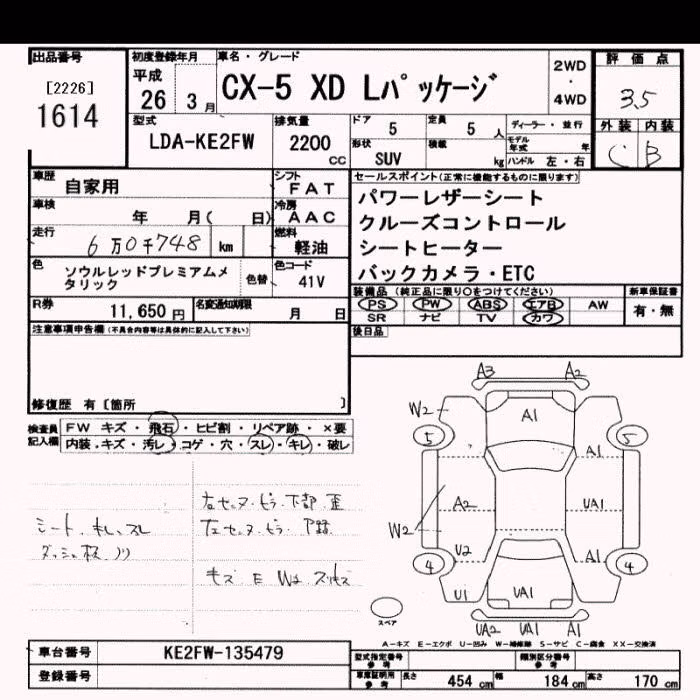 出品番号
[2226]
1614
初度登録年月
平成
26 3月
車名・グレード
CX-5 XD Lパッケージ
2WD
・
4WD
評価点
3.5
外装 内装
C B
型式
LDA-KE2FW
排気量
2200
CC
ドア 5
定員 5 人
ディーラー・並行
形状 SUV
積載 kg
モデル年式 年
ハンドル 左・右
車歴 自家用
シフト FAT
車検 年 月( 日)
冷房 AAC
走行 6万0千748 km
燃料 軽油
色 ソウルレッドプレミアムメタリック
色替
色コード 41V
R券 11,650円
名変通知期限 月 日
セールスポイント(正常に機能するものに限ります)
パワーレザーシート
クルーズコントロール
シートヒーター
バックカメラ・ETC
装備品 (純正品に限り○をつけてください)
PS PW ABS エアB AW
SR ナビ TV カワ
新車保証書
有・無
後日品
注意事項申告欄(不具合内容等は具体的に記入して下さい)
修復歴 有[箇所 ]
検査員記入欄
FW キズ・飛石・ヒビ割・リペア跡・×要
内装・キズ・汚レ・コゲ・穴・スレ・キレ・破レ
シート、キレ、スレ
左センターピラー下部
キズ E W
A3 A2
W2 A1
5 5
A1
A2 UA1
W2
U2 A1
4 4
U1 UA1
UA2 UA1 A1
スペア
A-キズ E-エクボ U-凹み W-補修跡 S-サビ C-腐食 XX-交換済
車台番号 KE2FW-135479
登録番号
型式指定番号 参考
類別区分番号 参考
車庫証明用 参考
長さ 454 cm 幅 184 cm 高さ 170 cm